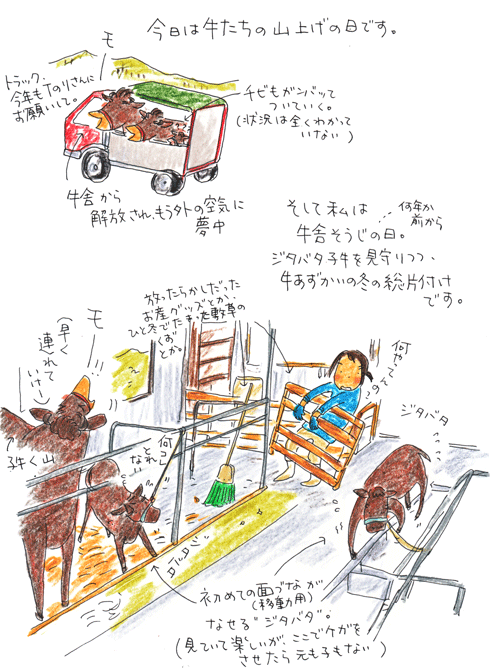 今日は牛たちの山上げの日です。
モー
トラック、
今年もTのりさんに
お願いして。
チビもガンバって
ついていく。
(状況は全くわかって
いない)
牛舎から
解放され、もう外の空気に
夢中
そして私は
何年か
前から
牛舎そうじの日。
ジタバタ子牛を見守りつつ、
牛あずかいの冬の総片付け
です。
放ったらかしだった
お産グッズとか、
ひと冬でたまった敷草の
くず
とか。
モー
(早く
連れて
いけー)
何コレ
とれ
ない
何やってんの
ジタバタ
初めての面づなが
(移動用)
なせる"ジタバタ"。
(見ていて楽しいが、ここでケガを
させたら元も子もない)